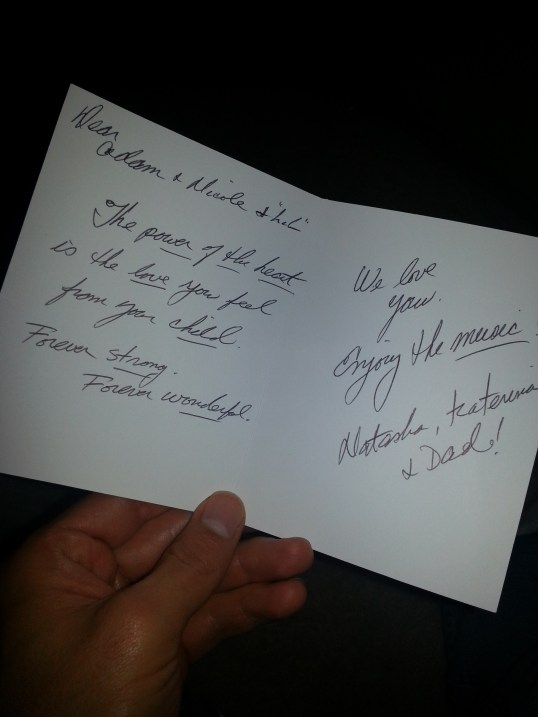 Dear
Adam & Nicole & "Lil"
The power of the heart
is the love you feel
from your child.
Forever strong.
Forever wonderful.
We love
you.
Enjoy the music
Natasha, Katerina
& Dad!